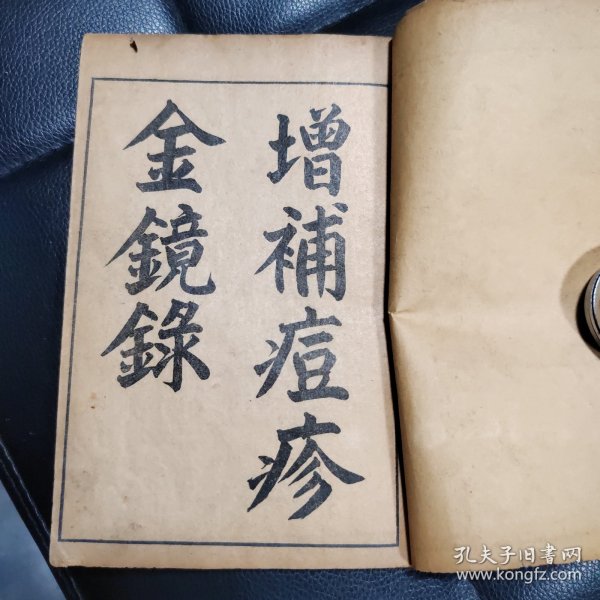 增補痘疹
金鏡錄
孔夫子旧書网
www.kongfz.com